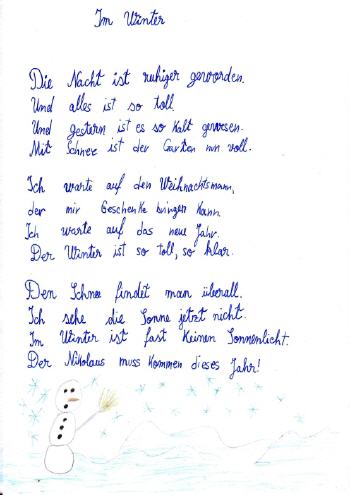 Im Winter
Die Nacht ist ruhiger geworden.
Und alles ist so toll.
Und gestern ist es so kalt gewesen.
Mit Schnee ist der Garten nun voll.
Ich warte auf den Weihnachtsmann,
der mir Geschenke bringen kann.
Ich warte auf das neue Jahr.
Der Winter ist so toll, so klar.
Den Schnee findet man überall.
Ich sehe die Sonne jetzt nicht.
Im Winter ist fast keinen Sonnenlicht.
Der Nikolaus muss kommen dieses Jahr!